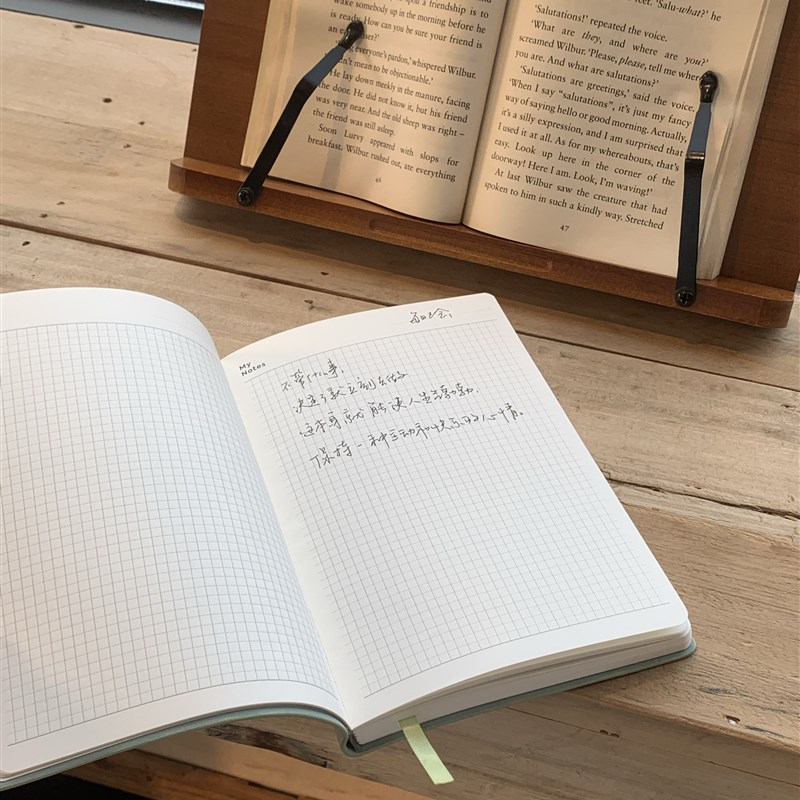 upon a friendship is to
wake somebody up in the morning before he
is ready. How can you be sure your friend is
an
everyone's pardon,' whispered Wilbur.
didn't mean to be objectionable.'
He lay down meekly in the manure, facing
the door. He did not know it, but his friend
was very near. And the old sheep was right –
the friend was still asleep.
Soon Lurvy appeared with slops for
breakfast. Wilbur rushed out, ate everything
46
feet. 'Salu-what?' he
'Salutations!' repeated the voice.
'What are they, and where are you?'
screamed Wilbur. 'Please, please, tell me where
you are. And what are salutations?'
'Salutations are greetings,' said the voice.
'When I say "salutations", it's just my fancy
way of saying hello or good morning. Actually,
it's a silly expression, and I am surprised that
I used it at all. As for my whereabouts, that's
easy. Look up here in the corner of the
doorway! Here I am. Look, I'm waving!'
At last Wilbur saw the creature that had
spoken to him in such a kindly way. Stretched
47
My
Notes
不管什么事,
决定了就立刻去做
这本身就能使人生
保持一种主动和快乐的心情。